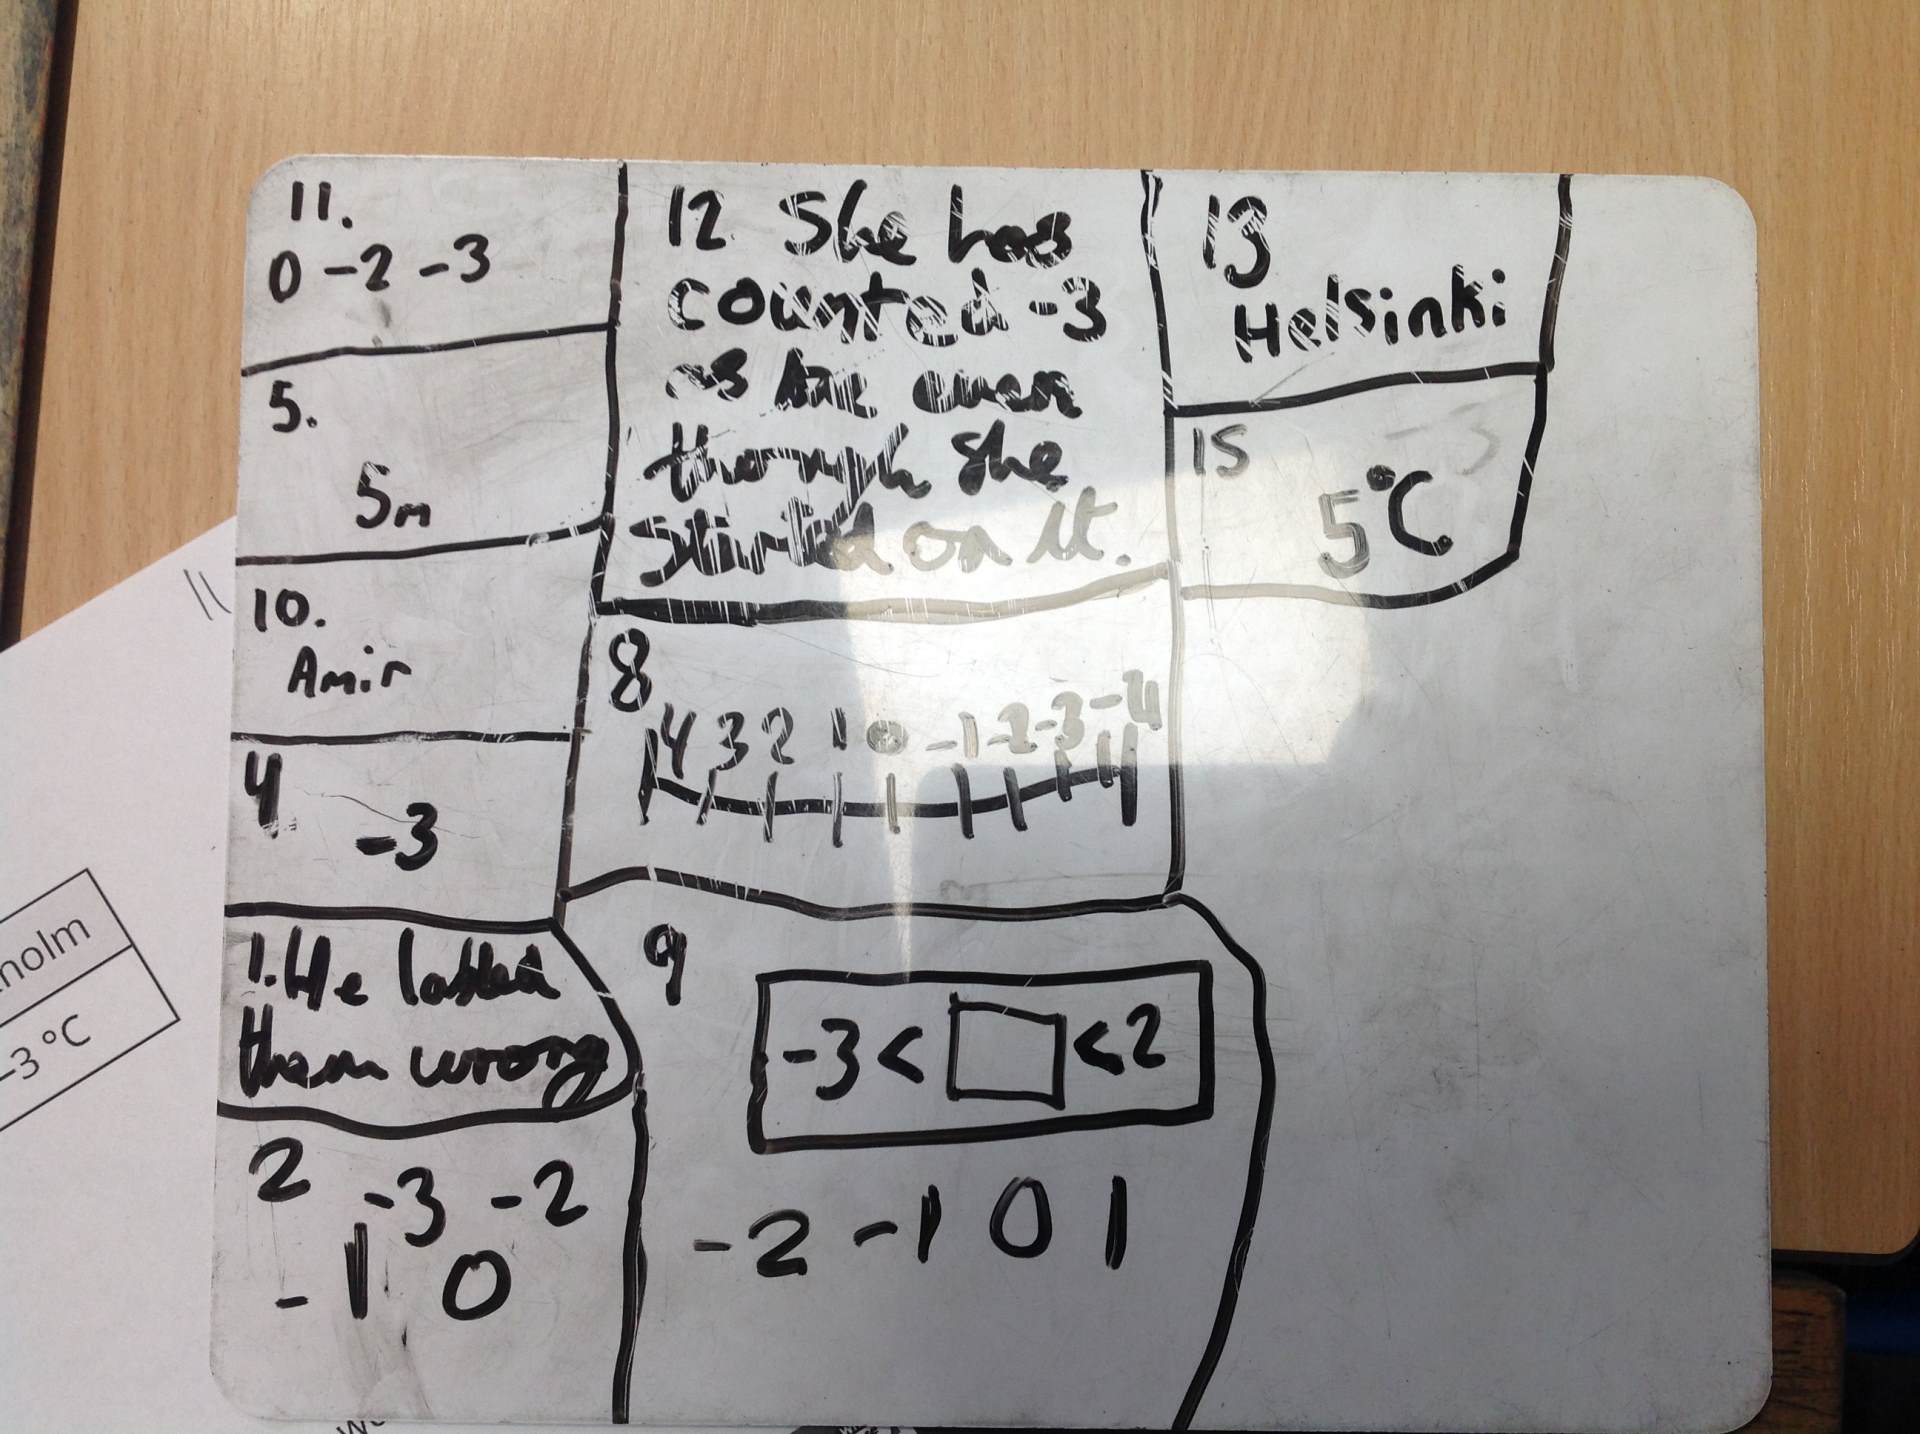 11.
0 -2 -3
5.
5m
10.
Amir
4
-3
1. He labled
them wrong
2
-3 -2
-1 0
12. She has
counted -3
as one even
though she
started on it.
8
4 3 2 1 0 -1 -2 -3 -4
9
-3 < □ < 2
-2 -1 0 1
13
Helsinki
15
5°C
11
holm
-3 °C